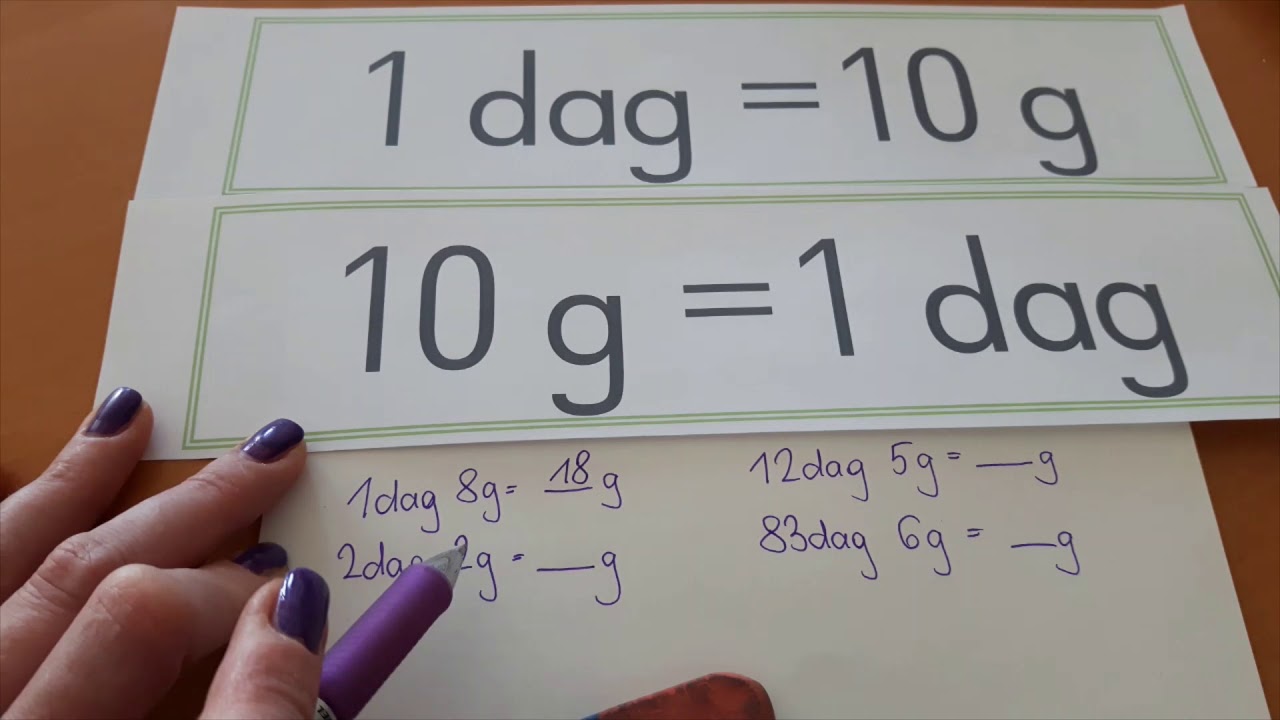 1 dag = 10 g
10 g = 1 dag
1dag 8g= 18 g
12dag 5g= __g
2dag 2g = __g
83dag 6g = __g